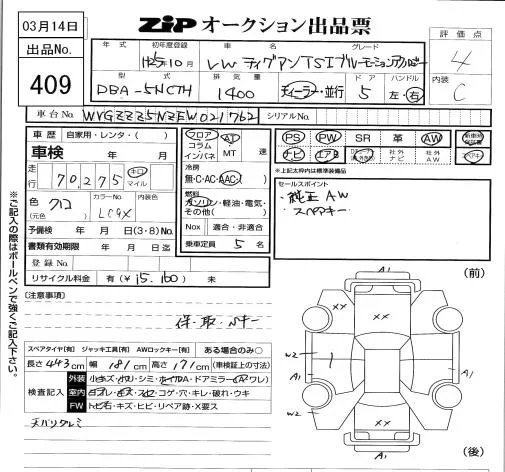 03月14日
出品No.
409
ZIP オークション出品票
年式 初年度登録 車名 グレード
H25年10月 VW ティグアン TSIブルーモーションテクノロジー
型式 排気量 ドア ハンドル
DBA-5NCTH 1400 ディーラー・並行 5 左・右
評価点
4
内装
C
車台No. WVGZZZ5NZEW021762 シリアルNo.
車歴 自家用・レンタ・( )
車検 年 月
走行 70,275 キロ マイル
色 クロ カラーNo. 内装色
(元色) LC9X
予備検 年 月 日(3・8)No.
書類有効期限 年 月 日迄
登録No.
リサイクル料金 有(¥15,100) 未
フロア AT
コラム
インパネ MT 速
冷房
無・C・AC・AAC
燃料
ガソリン・軽油・電気・
その他( )
Nox 適合・非適合
乗車定員 5 名
PS PW SR 革 AW
ナビ エアB 社外ナビ 社外AW スペアキー
※上記太枠内は標準装備品
セールスポイント
・純正AW
・スペアキー
※ご記入の際はボールペンで強くご記入下さい。
[注意事項]
保・取・Nキー
スペアタイヤ[有] ジャッキ工具[有] AWロックキー[有] ある場合のみ○
長さ 443cm 幅 181cm 高さ 171cm (車検証上の寸法)
検査記入
外装 小キズ・小凹・シミ・ホイルA・ドアミラー(A・ワレ)
室内 ヨゴレ・キズ・スレ・コゲ・穴・キレ・破れ・ウキ
FW トビ石・キズ・ヒビ・リペア跡・X要ス
天バリタレミ
(前)
A1
XX
W2
A1
W2
A1
XX
A1
(後)